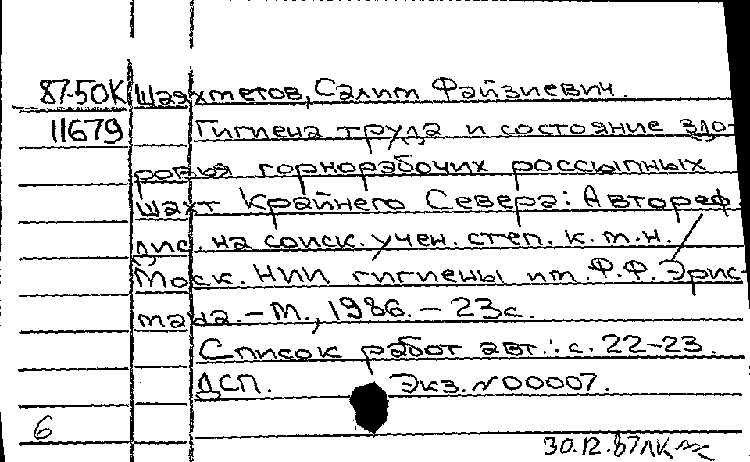 87-50К Шаяхметов, Салим Файзиевич.
11679 Гигиена труда и состояние здо-
ровья горнорабочих россыпных
шахт Крайнего Севера: Автореф.
дис. на соиск. учен. степ. к.м.н. /
Моск. НИИ гигиены им. Ф.Ф. Эрис-
мана. – М., 1986. – 23с.
Список работ авт.: с. 22-23.
ДСП. Экз. N 00007.
6
30.12.87